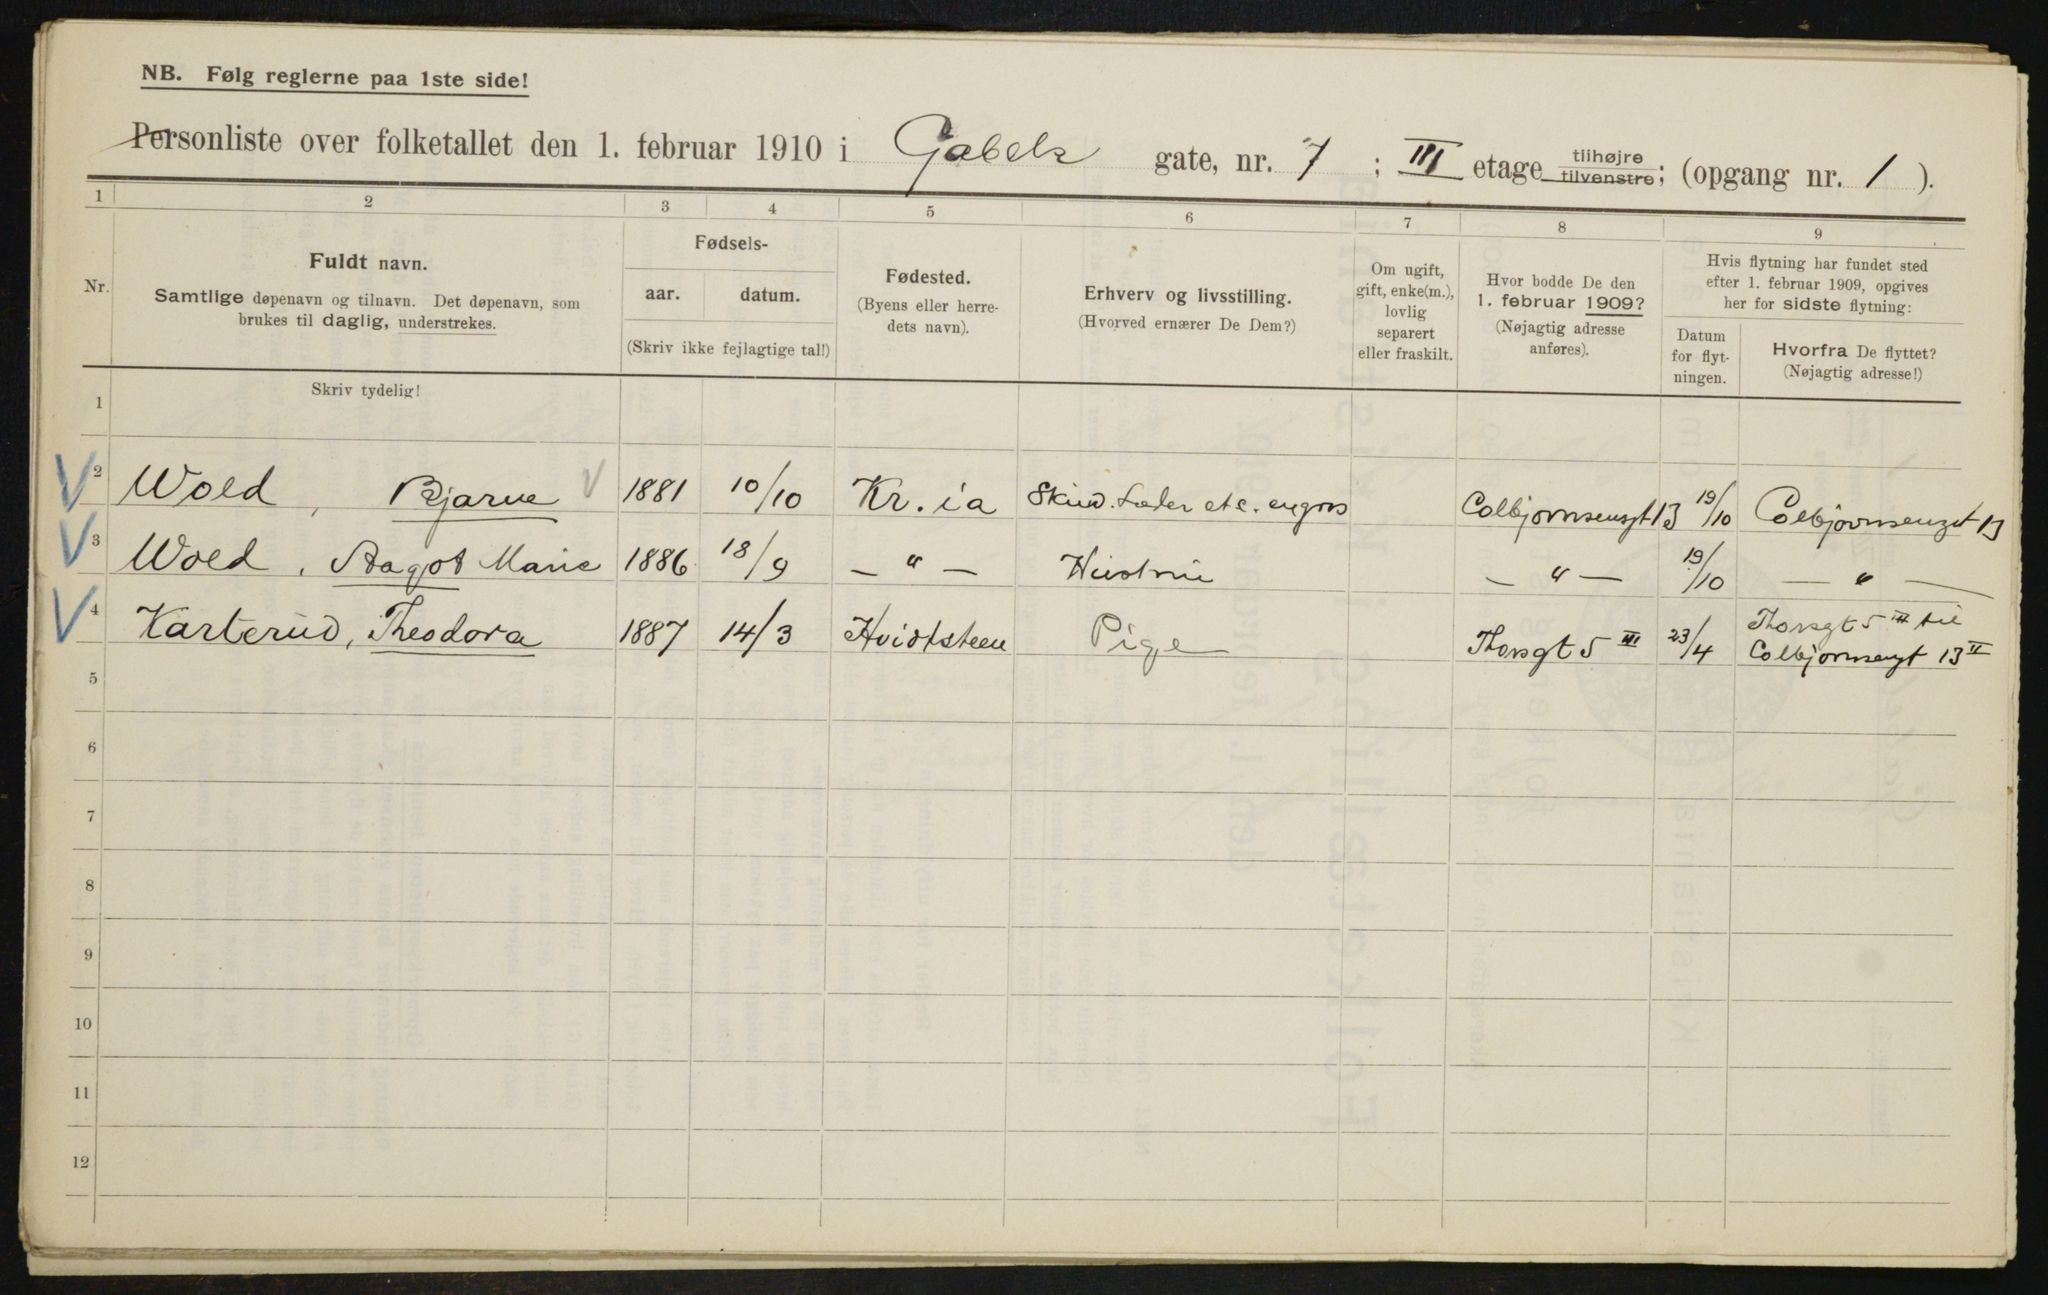 NB. Følg reglerne paa 1ste side!
Personliste over folketallet den 1. februar 1910 i Gabels gate, nr. 7 ; III etage tilhøjre tilvenstre; (opgang nr. 1 ).
1 2 3 4 5 6 7 8 9
Nr.
Fuldt navn.
Samtlige døpenavn og tilnavn. Det døpenavn, som
brukes til daglig, understrekes.
Skriv tydelig!
Fødsels-
aar. datum.
(Skriv ikke fejlagtige tal!)
Fødested.
(Byens eller herre-
dets navn).
Erhverv og livsstilling.
(Hvorved ernærer De Dem?)
Om ugift,
gift, enke(m.),
lovlig
separert
eller fraskilt.
Hvor bodde De den
1. februar 1909?
(Nøjagtig adresse
anføres).
Hvis flytning har fundet sted
efter 1. februar 1909, opgives
her for sidste flytning:
Datum
for flyt-
ningen.
Hvorfra De flyttet?
(Nøjagtig adresse!)
1
2 Wold, Bjarne 1881 10/10 Kr.ia Skind. Læder etc. engros Colbjørnsensgt 13 19/10 Colbjørnsensgt 13
3 Wold, Aagot Marie 1886 18/9 — " — Hustru — " — 19/10 — " —
4 Karterud, Theodora 1887 14/3 Hvidtsteen Pige Thorsgt 5 III 23/4 Thorsgt 5 III til
Colbjørnsengt 13 II
5
6
7
8
9
10
11
12